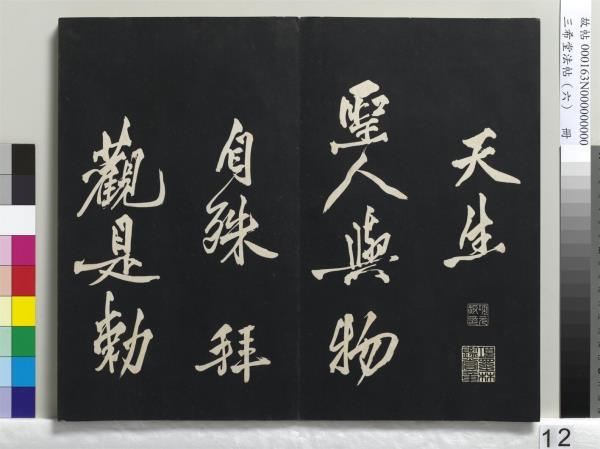 天生
聖人與物
自殊 拜
觀是勅
故帖 000163N000000000
三希堂法帖（六） 冊
12